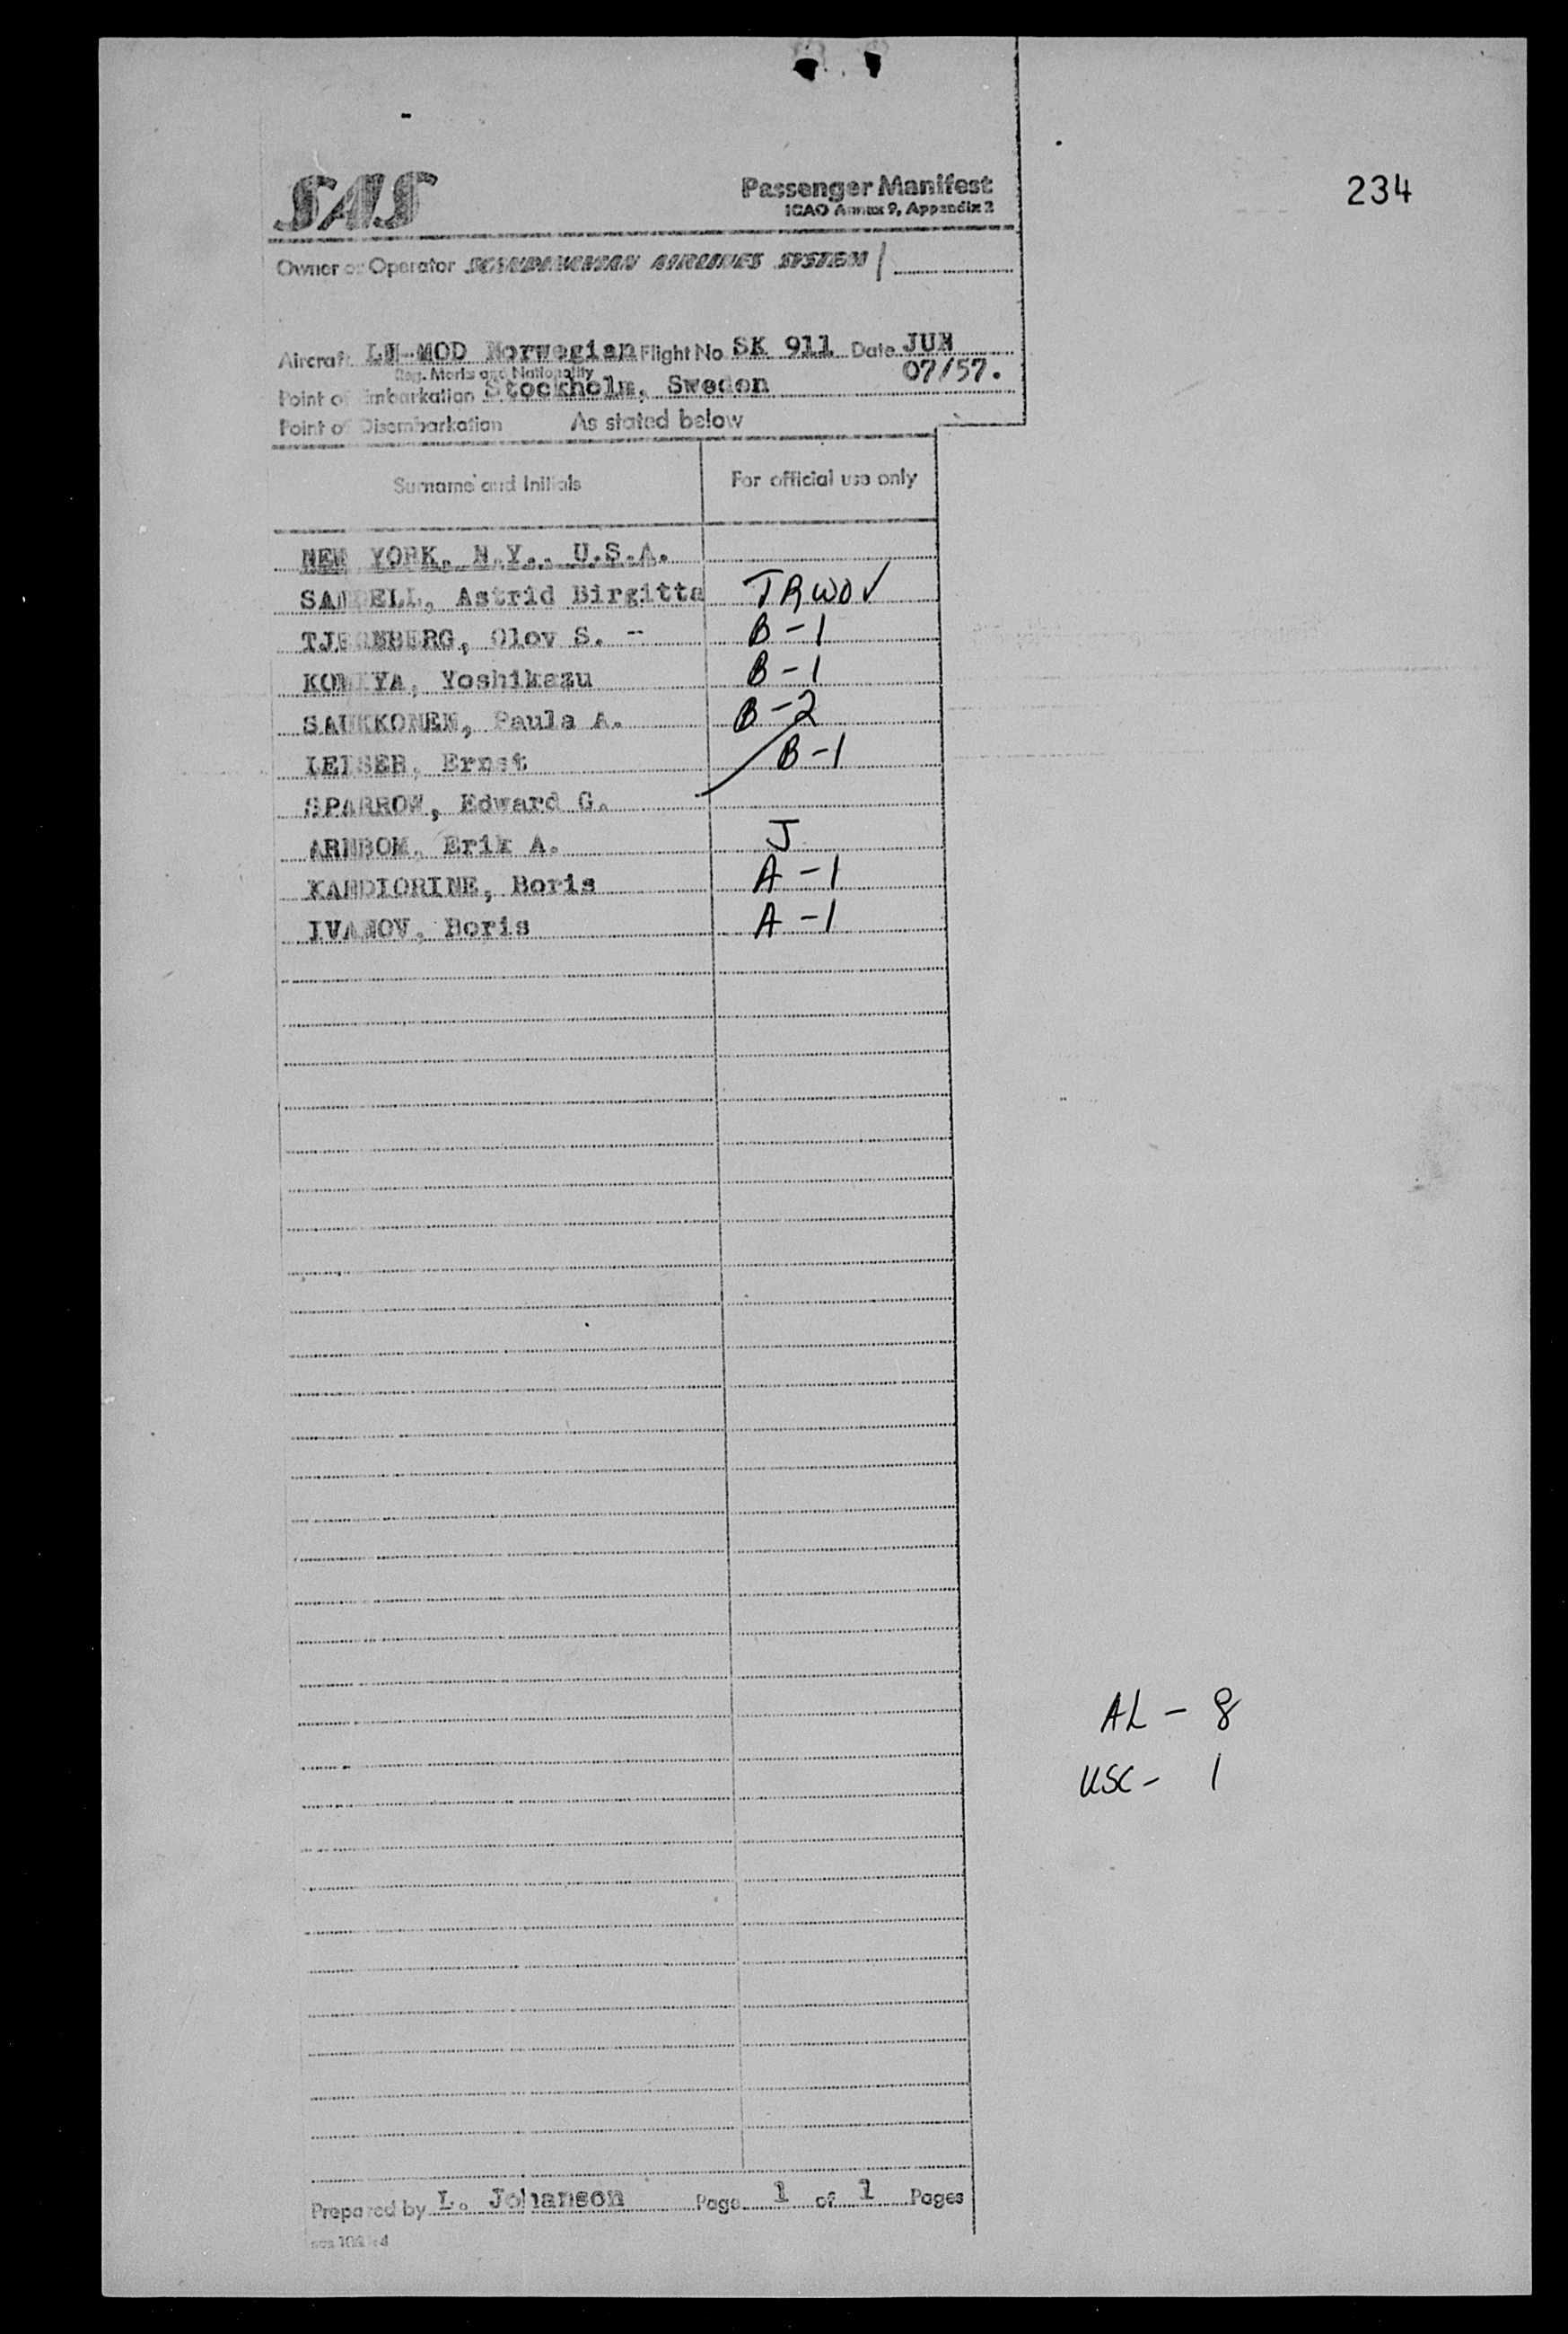 234
SAS
Passenger Manifest
ICAO Annex 9, Appendix 2
Owner or Operator SCANDINAVIAN AIRLINES SYSTEM /
Aircraft LN-MOD Norwegian Flight No. SK 911 Date JUN
Reg. Marks and Nationality 07/57.
Point of Embarkation Stockholm, Sweden
Point of Disembarkation As stated below
Surname and Initials For official use only
NEW YORK, N.Y., U.S.A.
SANDELL, Astrid Birgitta TRWOV
TJERNBERG, Olov S. - B-1
KOMIYA, Yoshikazu B-1
SAUKKONEN, Paula A. B-2
LEISER, Ernst B-1
SPARROW, Edward G.
ARNBOM, Erik A. J
KANDIORINE, Boris A-1
IVANOV, Boris A-1
AL - 8
USC - 1
Prepared by L. Johanson Page 1 of 1 Pages